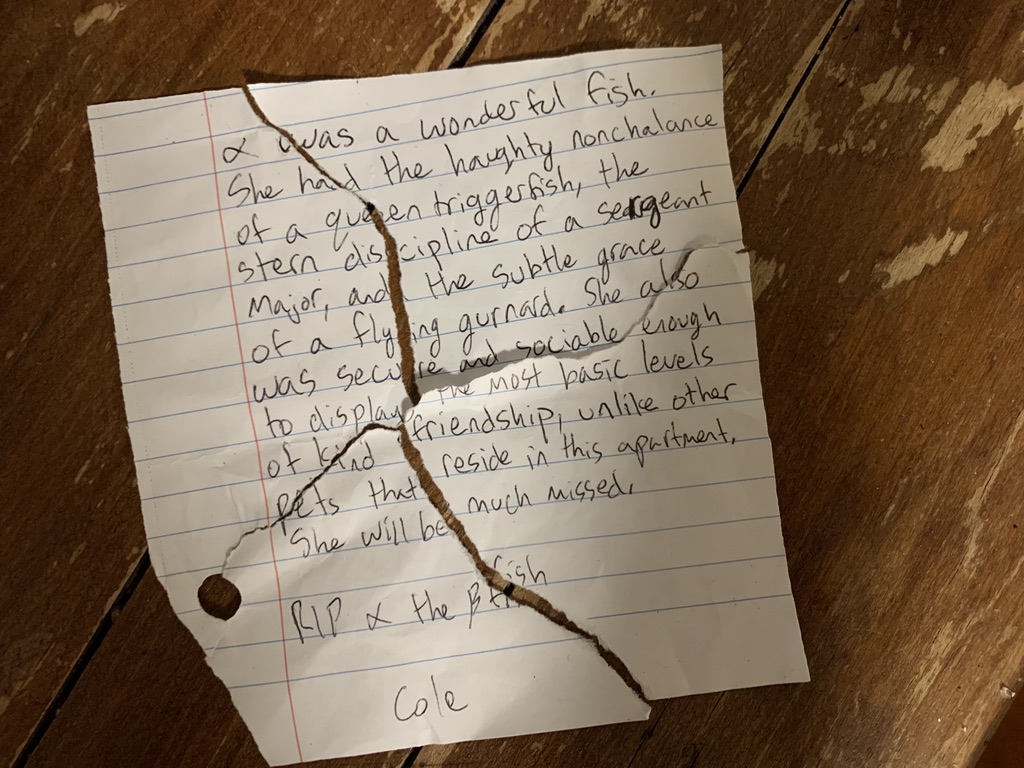 α was a wonderful fish.
She had the haughty nonchalance
of a queen triggerfish, the
stern discipline of a sergeant
major, and the subtle grace
of a flying gurnard. She also
was secure and sociable enough
to display the most basic levels
of kind friendship, unlike other
pets that reside in this apartment.
She will be much missed.
RIP α the β fish
Cole